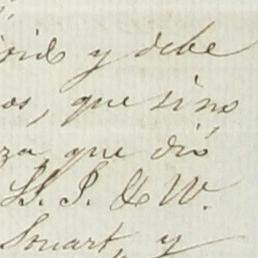 y debe
os, que si no
za, que dió
S. S. & W.
Stuart, y